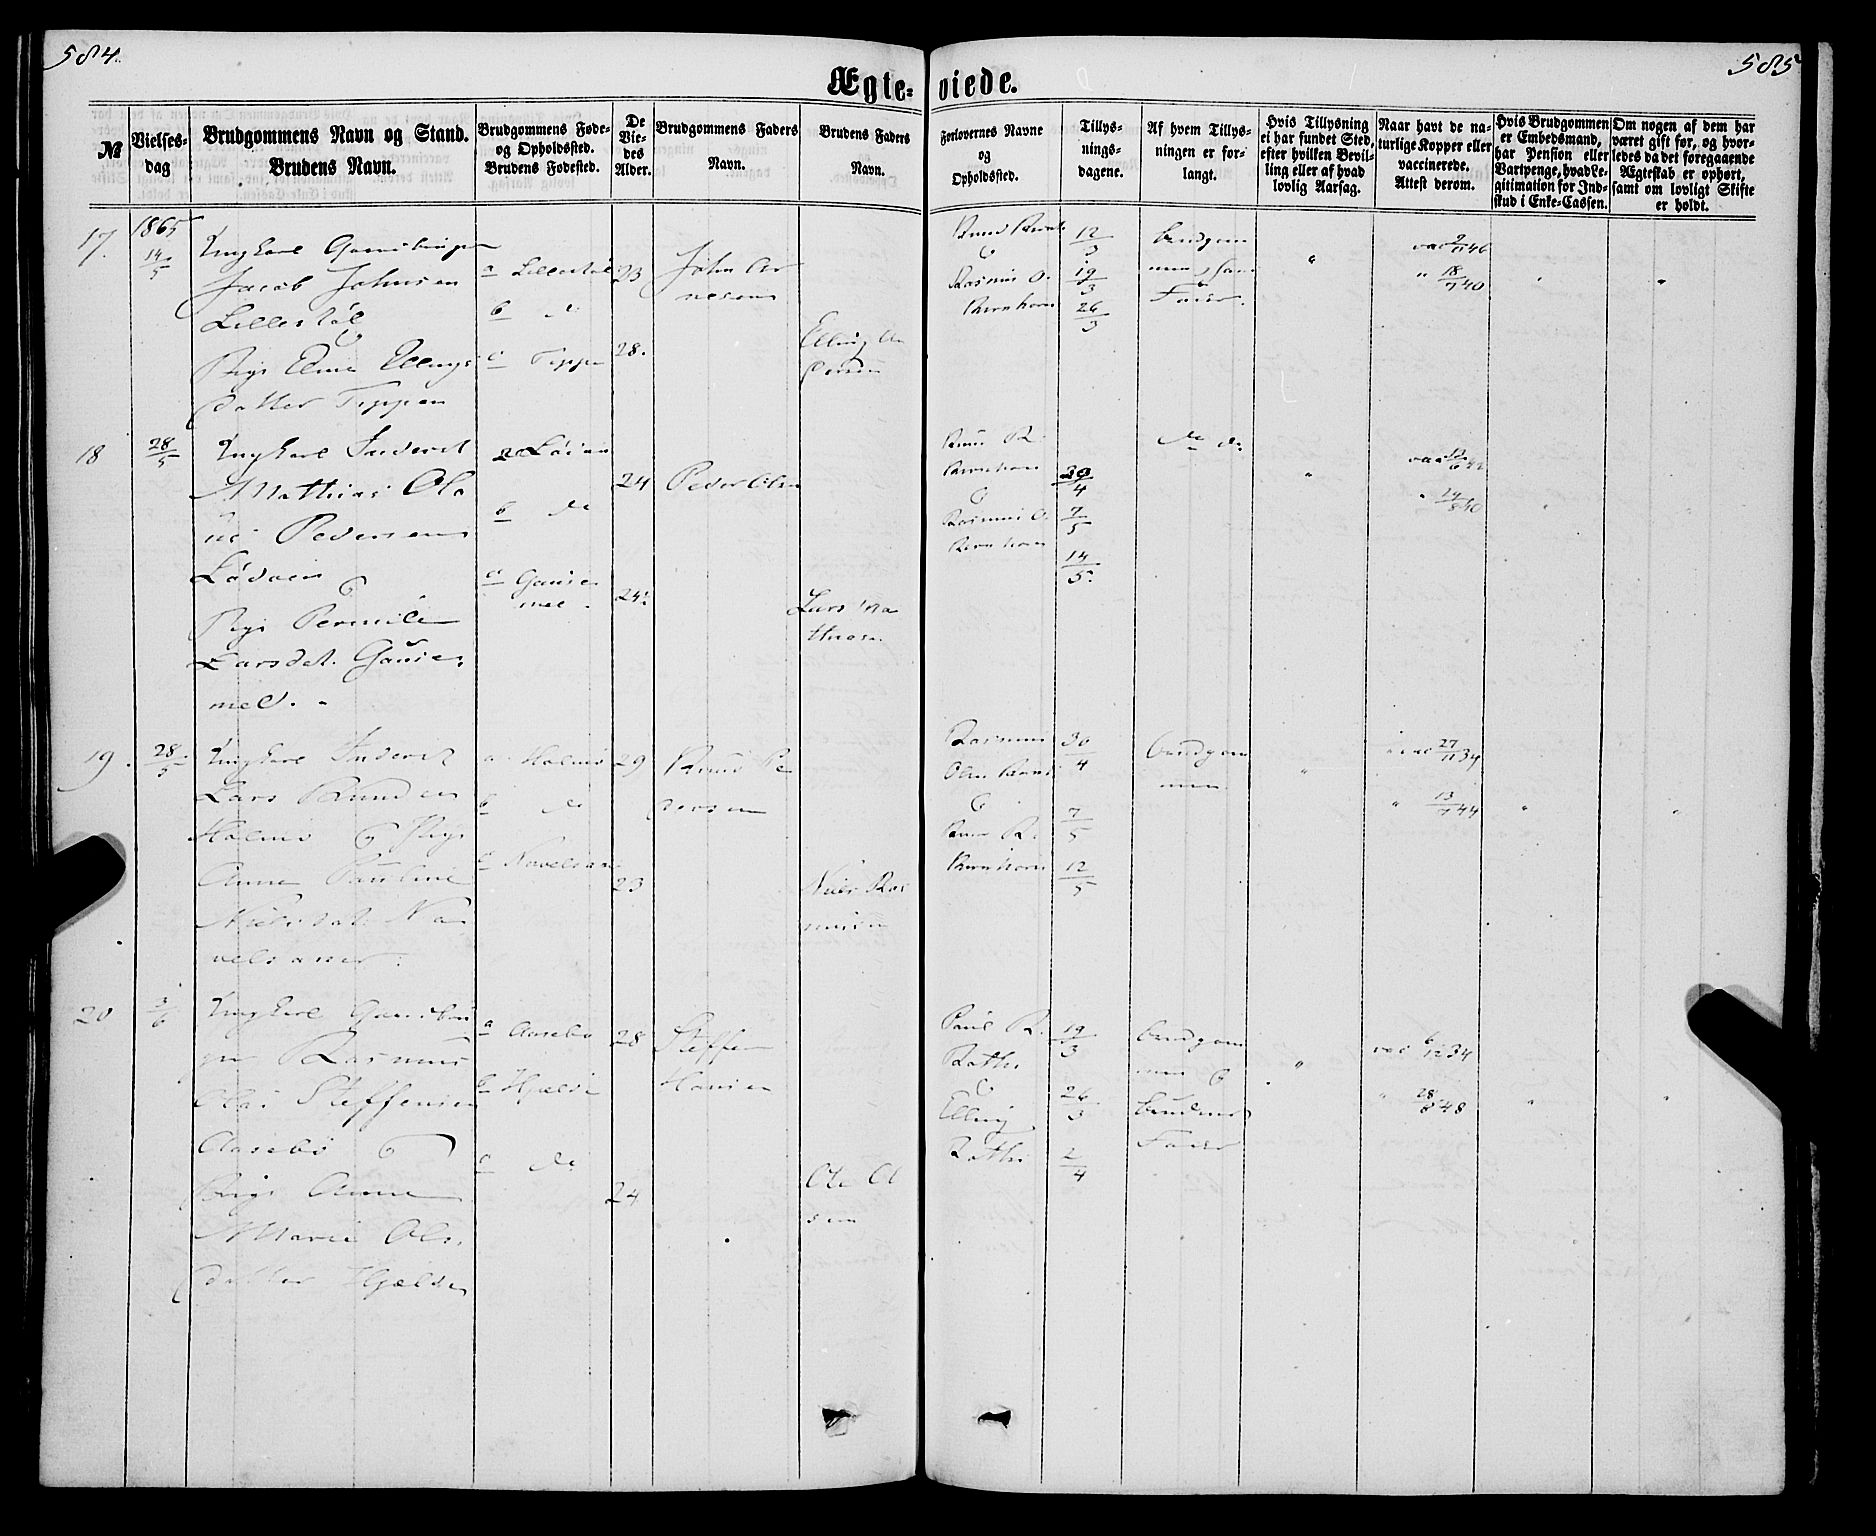 584.
585
Ægte-
viede.
№
Vielses-
dag
Brudgommens Navn og Stand.
Brudens Navn.
Brudgommens Føde-
og Opholdssted.
Brudens Fødested.
De
Vie-
des
Alder.
Brudgommens Faders
Navn.
Brudens Faders
Navn.
Forlovernes Navne
og
Opholdssted.
Tillys-
nings-
dagene.
Af hvem Tillys-
ningen er for-
langt.
Hvis Tillysning
ei har fundet Sted,
efter hvilken Bevil-
ling eller af hvad
lovlig Aarsag.
Naar havt de na-
turlige Kopper eller
vaccinerede.
Attest derom.
Hvis Brudgommen
er Embedsmand,
har Pension eller
Vartpenge, hvad Le-
gitimation for Ind-
skud i Enke-Cassen.
Om nogen af dem har
været gift før, og hvor-
ledes da det foregaaende
Ægteskab er ophørt,
samt om lovligt Skifte
er holdt.
1865
17.
14/5
Ungkarl
Jacob Johnsen
Lillestøl
Pige Elling
datter Teppen
a Lillestøl
b do
c Teppen
23
28.
John Ar
nesen
Rasmus O.
12/3
19/3
26/3
Fader.
vac 9/11 46
" 18/7 40
18
28/5
Ungkarl
Mathias Ola
us Pedersen
Lødøen
Pige Pernille
Larsdat. Gausse
mel.
a Lødøen
b do
c Gausse
mel.
24
24.
Peder Olsen
Lars Ma
thiasen
Knud R.
Rasmus O.
30/4
7/5
14/5.
do do
19.
28/5
Ungkarl
Lars Knudsen
Holmø & Pige
Anne Pauline
Nielsdat. Na
velsaker.
a Holmø
b do
c Navelsaker
29
23
Knud Pe
dersen
Niels Ras
mussen
Rasmus
Olsen
Knud R.
30/4
7/5
12/5
brudgom
men
vac 27/11 34
" 13/7 44
20
3/6
Ungkarl Gaardbru
ger Rasmus
Olai Steffensen
Aasebø &
Pige Anne
Marie Ols
datter Hjelde
a Aasebø
b Hjelde
c do
28
24
Steffen
Hansen
Ole Ol
sen
Paul R.
Rothe
&
Elling
Rothe
19/3
26/3
2/4
brudgom
men &
brudens
Fader
vac 6/12 34
" 28/8 48